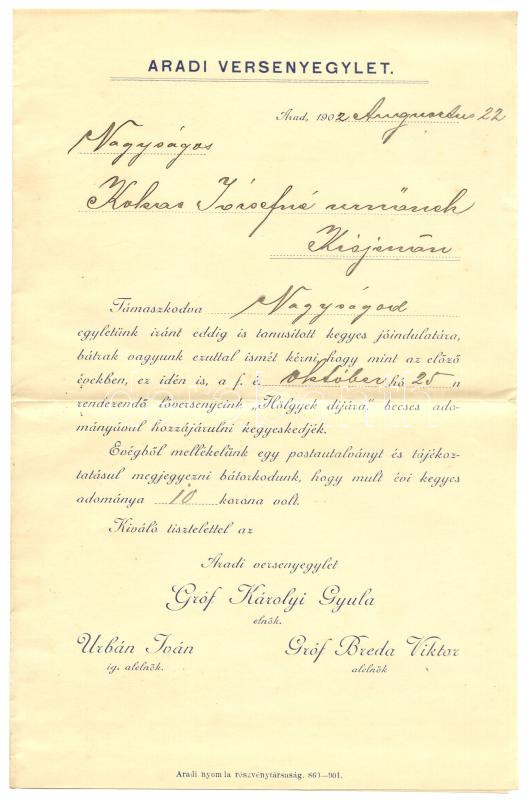 ARADI VERSENYEGYLET.
Arad, 1902 Augustus 22
Nagyságos
Kokas Józsefné urnőnek
Kisjenőn
Támaszkodva Nagyságod
egyletünk iránt eddig is tanusitott kegyes jóindulatára,
bátrak vagyunk ezuttal ismét kérni, hogy mint az előző
években, ez idén is, a f. é. október hó 25 n
rendezendő lóversenyeink „Hölgyek dijára" becses ado-
mányával hozzájárulni kegyeskedjék.
Evégből mellékelünk egy postautalványt és tájékoz-
tatásul megjegyezni bátorkodunk, hogy mult évi kegyes
adománya 10 korona volt.
Kiváló tisztelettel az
Aradi versenyegylet
Gróf Károlyi Gyula
elnök.
Urbán Iván Gróf Breda Viktor
ig. alelnök. alelnök
Aradi nyomda részvénytársaság. 860—901.